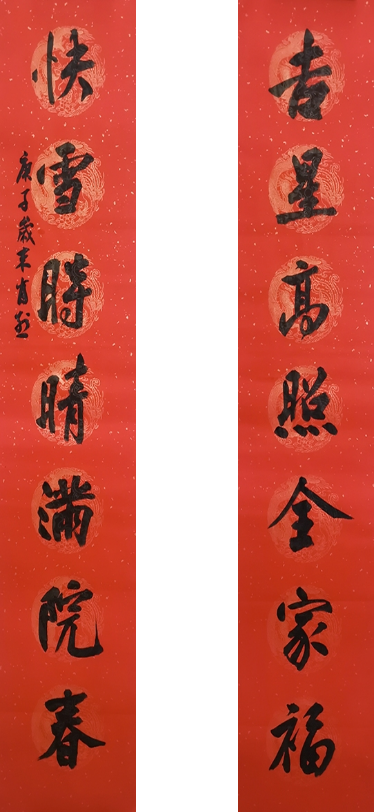 吉星高照全家福
快雪時晴滿院春
庚子歲末